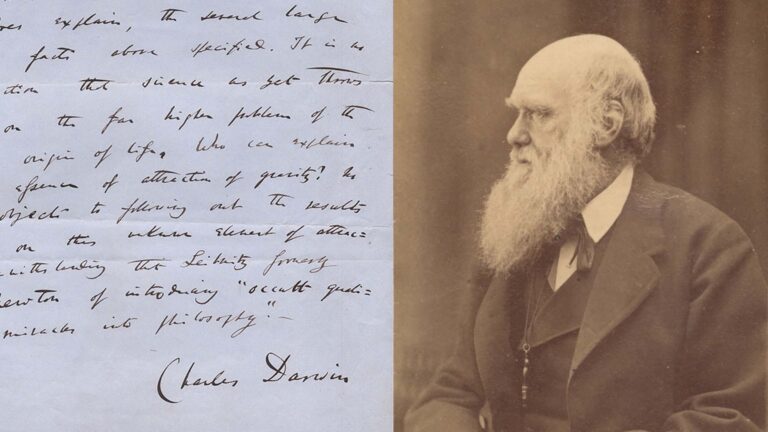 explain, the several large
facts above specified. It is no
that science as yet throws
on the far higher problem of the
origin of life. Who can explain
essence of attraction of gravity? No
objects to following out the results
on this unknown element of attrac=
that Leibnitz formerly
of introducing "occult quali=
miracles into philosophy."—
Charles Darwin